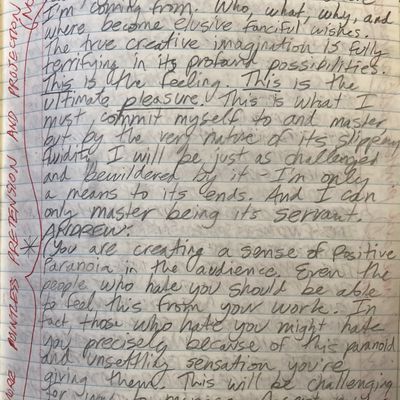 I'm coming from. Who, what, why, and
where become elusive fanciful wishes.
The true creative imagination is fully
terrifying in its profound possibilities.
This is the feeling. This is the
ultimate pleasure. This is what I
must commit myself to and master
but by the very nature of its slippery
fluidity I will be just as challenged
and bewildered by it - I'm only
a means to its ends. And I can
only master being its servant.
ANDREW:
* (You are creating a sense of Positive
Paranoia in the audience. Even the
people who hate you should be able
to feel this from your work. In
fact those who hate you might hate
you precisely because of this paranoid
and unsettling sensation you're
giving them. This will be challenging
for you to
POINTLESS PRETENSION AND PROJECTION